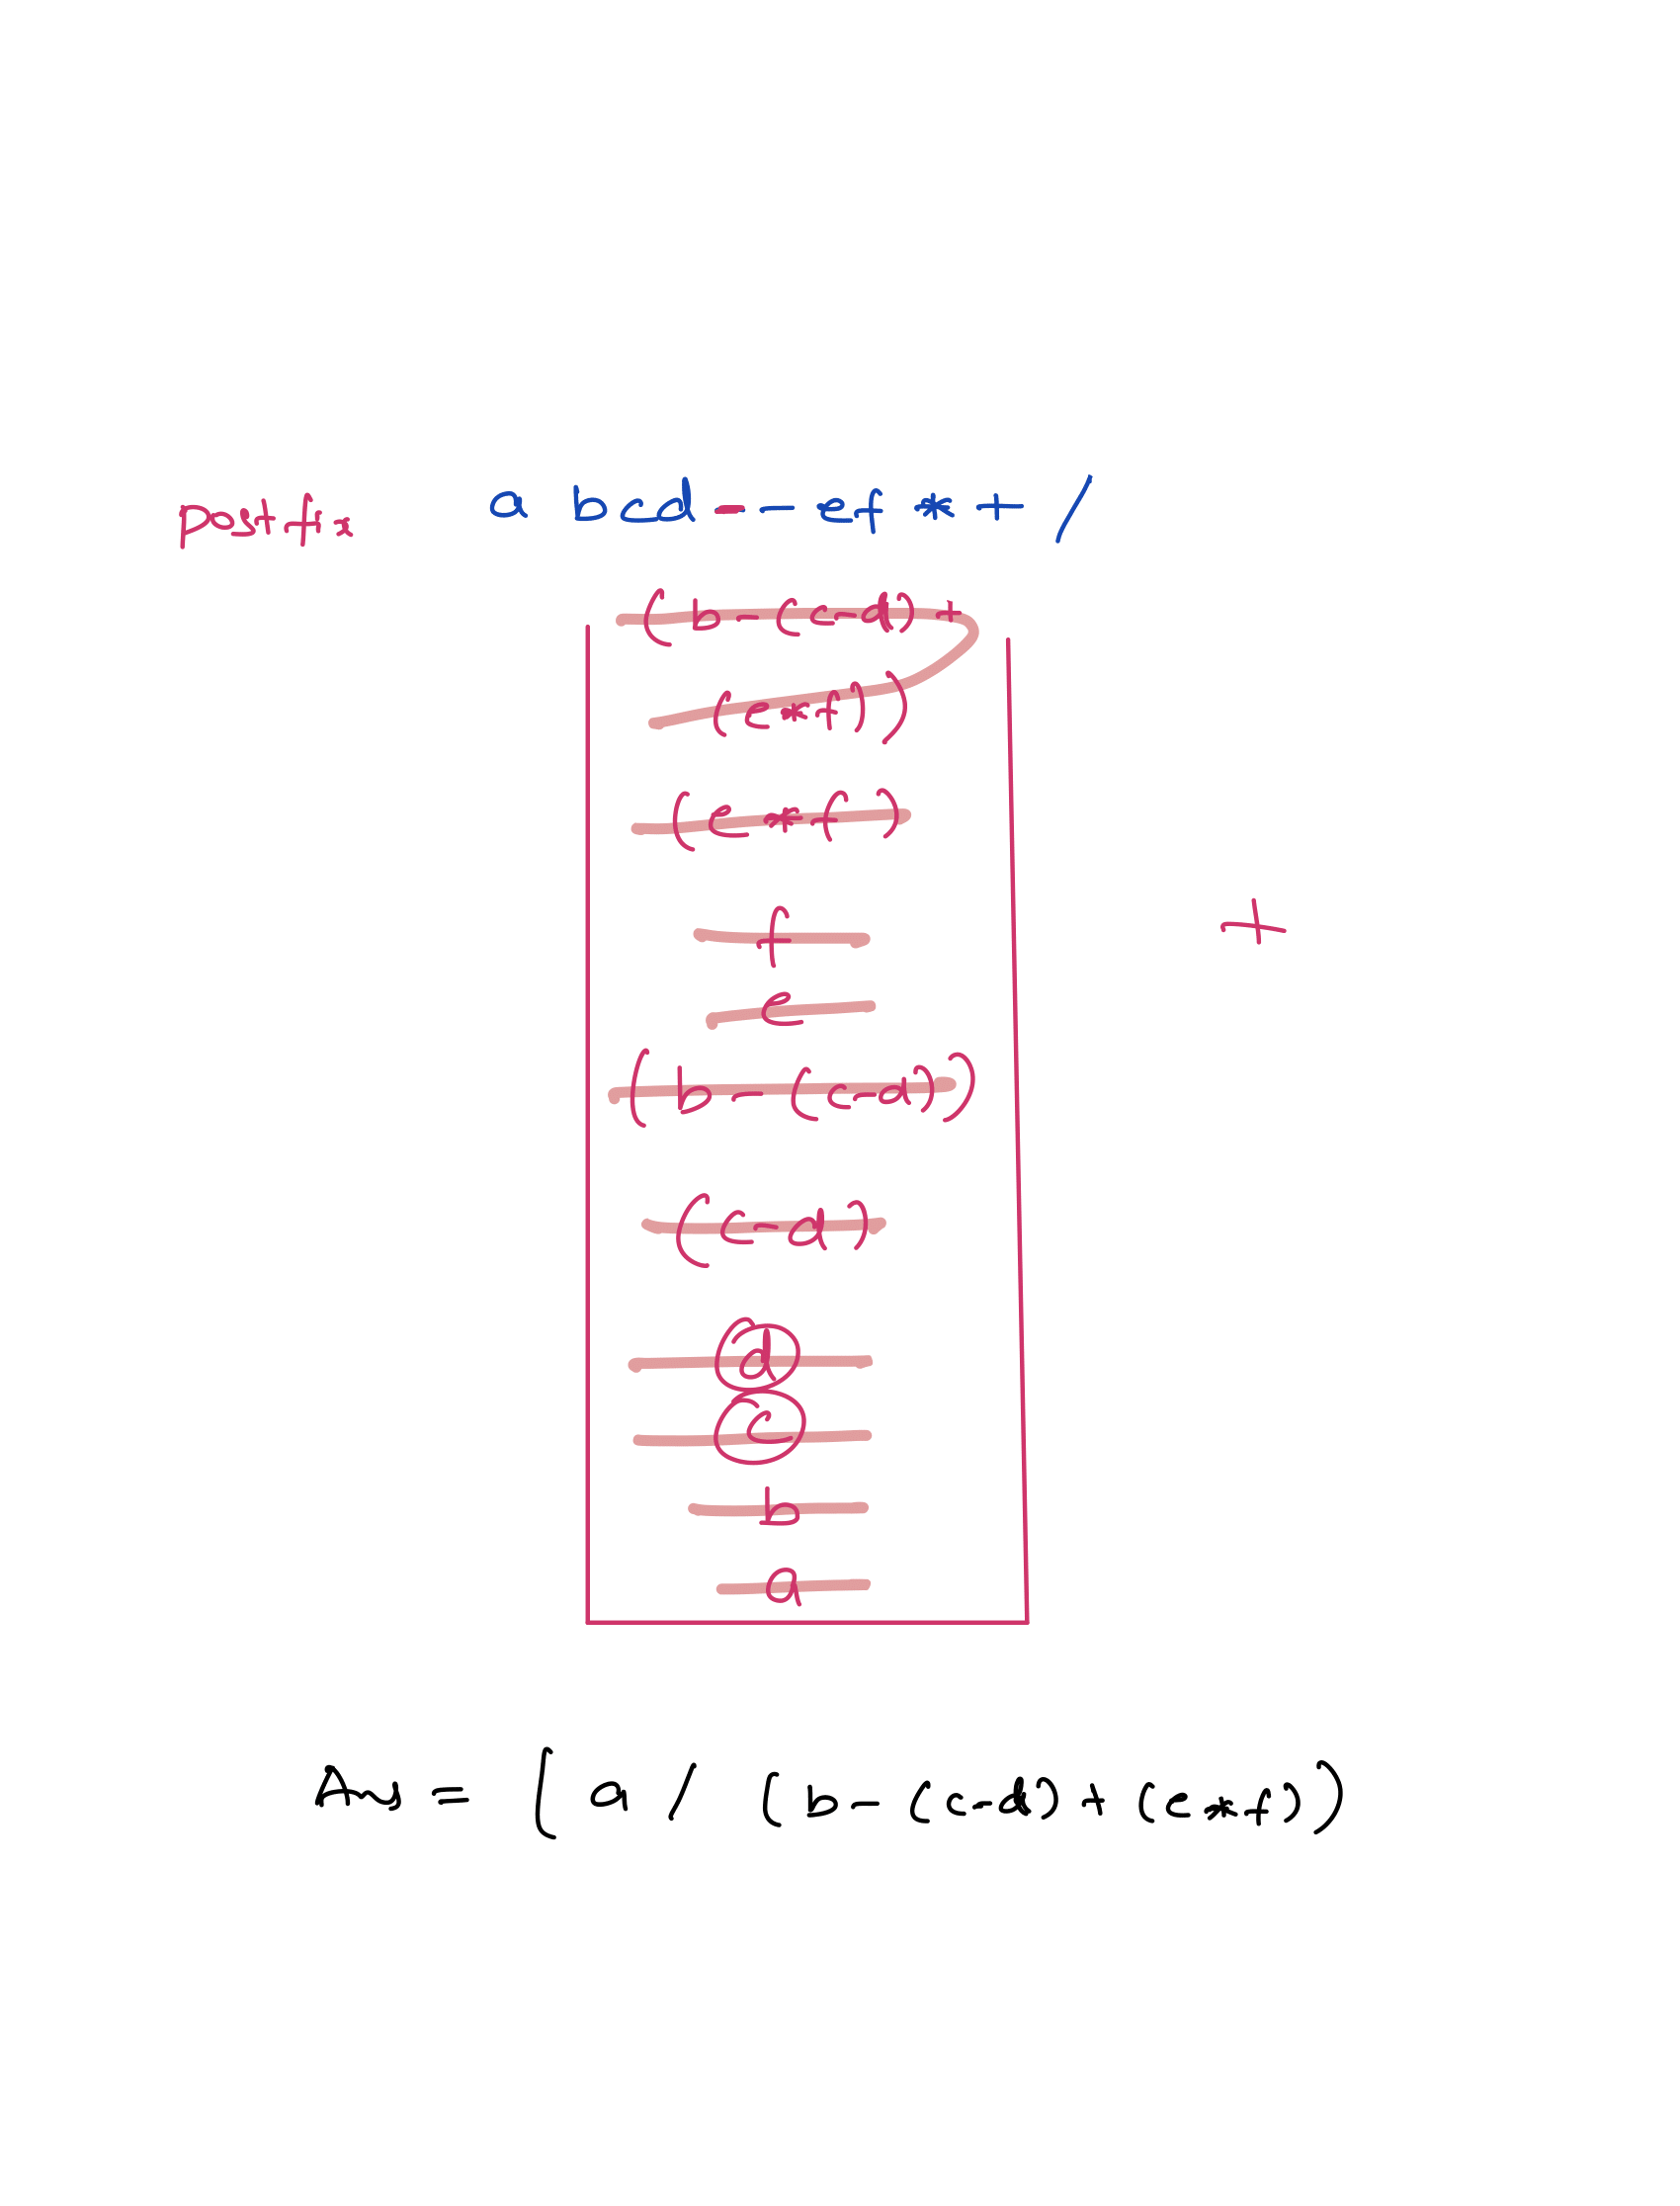 postfix a bcd--ef*+/
(b-(c-d)+
(e*f))
(e*f)
f
+
e
(b-(c-d))
(c-d)
d
c
b
a
Ans = [a / (b-(c-d)+(e*f))